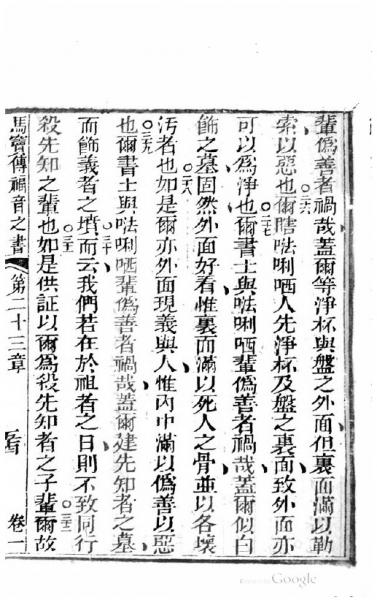 輩偽善者禍哉蓋爾等淨杯與盤之外面但裏面滿以勒
索以惡也○二六爾瞎𠵽唎哂人先淨杯及盤之裏面致外面亦
可以為淨也○二七爾書士與𠵽唎哂輩偽善者禍哉蓋爾似白
飾之墓固然外面好看惟裏面滿以死人之骨並以各壞
汚者也○二八如是爾亦外面現義與人惟內中滿以偽善以惡
也○二九爾書士與𠵽唎哂輩偽善者禍哉蓋爾建先知者之墓
而飾義者之墳○三十而云我們若在於祖者之日則不致同行
殺先知之輩也○三一如是供証以爾為殺先知者之子輩○三二爾故
馬竇傳福音之書 第二十三章 卷一
Google